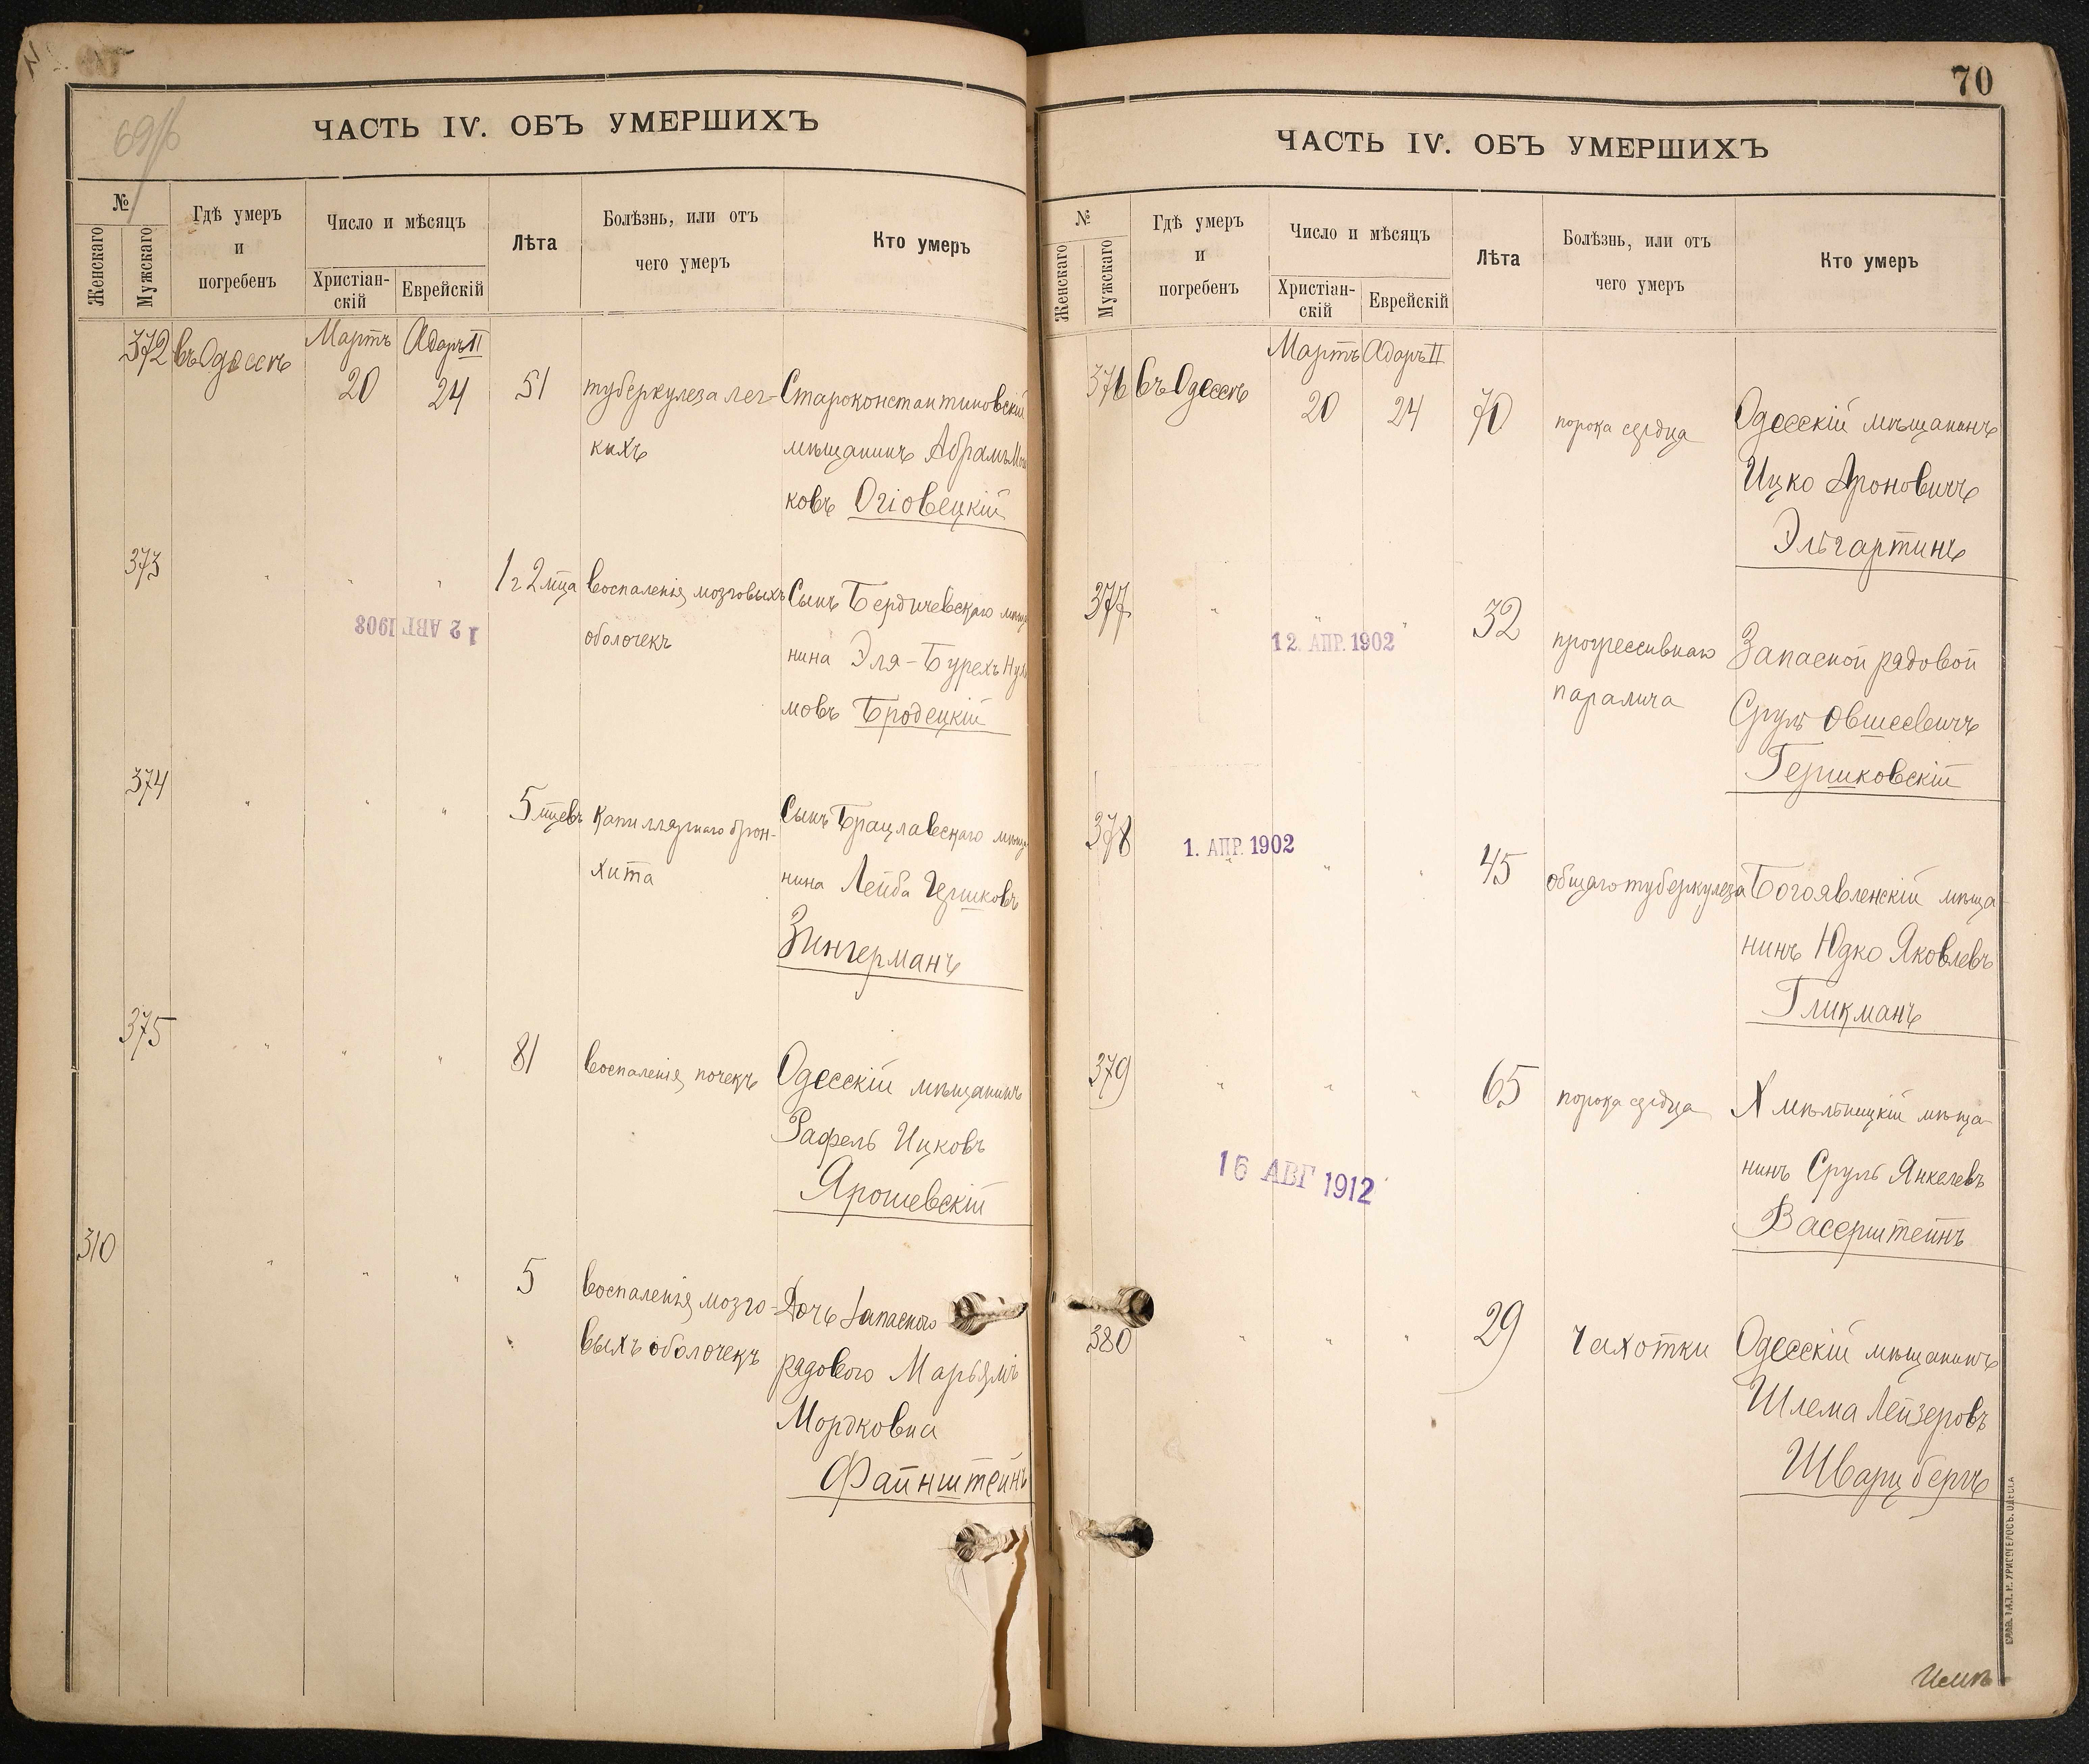 69/б
ЧАСТЬ IV. ОБЪ УМЕРШИХЪ
№
Женскаго
Мужскаго
Гдѣ умеръ
и
погребенъ
Число и мѣсяцъ
Христіан-
скій
Еврейскій
Лѣта
Болѣзнь, или отъ
чего умеръ
Кто умеръ
Мартъ Адаръ II
372 въ Одессѣ 20 24 51 туберкулеза лег- Староконстантиновскій
кихъ мѣщанинъ Абрамъ
ковъ Огіовецкій
373 " " " 1 г 2 мѣца воспаленія мозговыхъ Сынъ Бердичевскаго мѣща
12 АВГ 1908
оболочекъ нина Эля-Бурехъ
мовъ Бродецкій
374 " " " 5 мѣцевъ капиллярнаго брон- Сынъ Брацлавскаго мѣща
хита нина Лейба Гершковъ
Зингерманъ
375 " " " 81 воспаленія почекъ Одесскій мѣщанинъ
Рафель Ицковъ
Ярошевскій
310 " " " 5 воспаленія мозго- Дочь запаснаго
выхъ оболочекъ рядового Марьямъ
Мордковна
Файнштейнъ
70
ЧАСТЬ IV. ОБЪ УМЕРШИХЪ
№
Женскаго
Мужскаго
Гдѣ умеръ
и
погребенъ
Число и мѣсяцъ
Христіан-
скій
Еврейскій
Лѣта
Болѣзнь, или отъ
чего умеръ
Кто умеръ
Мартъ Адаръ II
376 въ Одессѣ 20 24 70 порока сердца Одесскій мѣщанинъ
Ицко Ароновичъ
Эльгартинъ
377 " " " 32 прогрессивнаго Запасной рядовой
12. АПР. 1902
паралича Сруль Овшеевичъ
Гершковскій
378 " " " 45 общаго туберкулеза Богоявленскій мѣща-
1. АПР. 1902
нинъ Юдко Яковлевъ
Гликманъ
379 " " " 65 порока сердца Хмѣльницкій мѣща-
16 АВГ 1912
нинъ Сруль Янкелевъ
Васерштейнъ
380 " " " 29 чахотки Одесскій мѣщанинъ
Шлема Лейзеровъ
Шварцбергъ